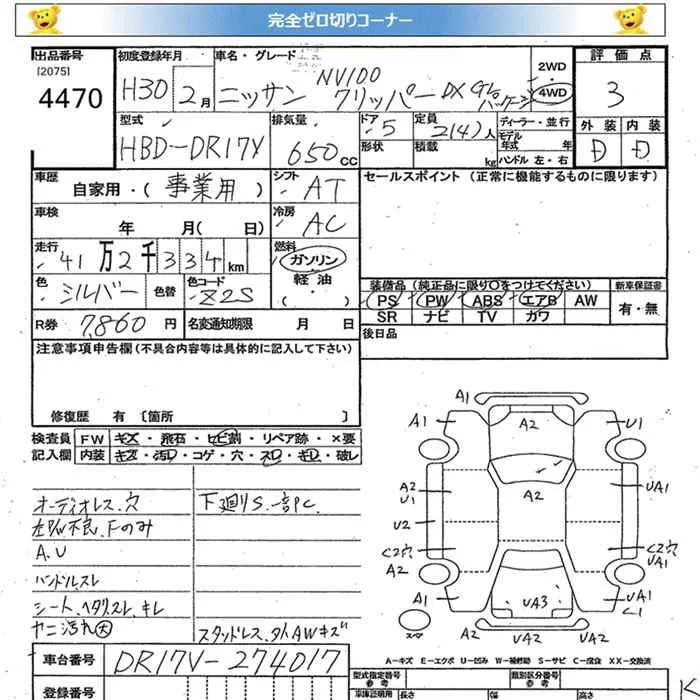 完全ゼロ切りコーナー
出品番号
[2075]
4470
初度登録年月
H30 2月
車名・グレード
NV100
ニッサン クリッパー DX GLパッケージ
2WD
4WD
評価点
3
外装 内装
D D
型式
HBD-DR17V
排気量
650cc
ドア 5
形状
定員 2(4)人
積載 kg
ディーラー・並行
モデル年式 年
ハンドル 左・右
車歴
自家用・(事業用)
シフト AT
セールスポイント (正常に機能するものに限ります)
車検
年 月(日)
冷房 AC
走行
41万2千334km
燃料
ガソリン
軽油
( )
色 シルバー
色替
色コード Z2S
装備品 (純正品に限り〇をつけてください)
PS PW ABS エアB AW
SR ナビ TV カワ
新車保証書
有・無
R券 7,860円
名変通知期限 月 日
後日品
注意事項申告欄 (不具合内容等は具体的に記入して下さい)
修復歴 有〔箇所 〕
検査員記入欄
FW キズ・飛石・ヒビ割・リペア跡・×要
内装 キズ・汚レ・コゲ・穴・スレ・キレ・破レ
オーディオレス、穴
下廻りS、一部PC.
A.U
ハンドルスレ
シート、ヘタリ、スレ、キレ
ヤニ汚れ大
スタッドレス、タイAWキズ
車台番号 DR17V-274017
登録番号
A1
A1 A2 U1
A2
U1 A2 UA1
U2
C2穴 C2穴
UA1
A2
A1 UA3 UA1
C1
スペア
A2 UA2 UA2
A－キズ E－エクボ U－凹み W－補修跡 S－サビ C－腐食 XX－交換済
型式指定番号
参考
類別区分番号
参考
車庫証明用
長さ 幅 高さ